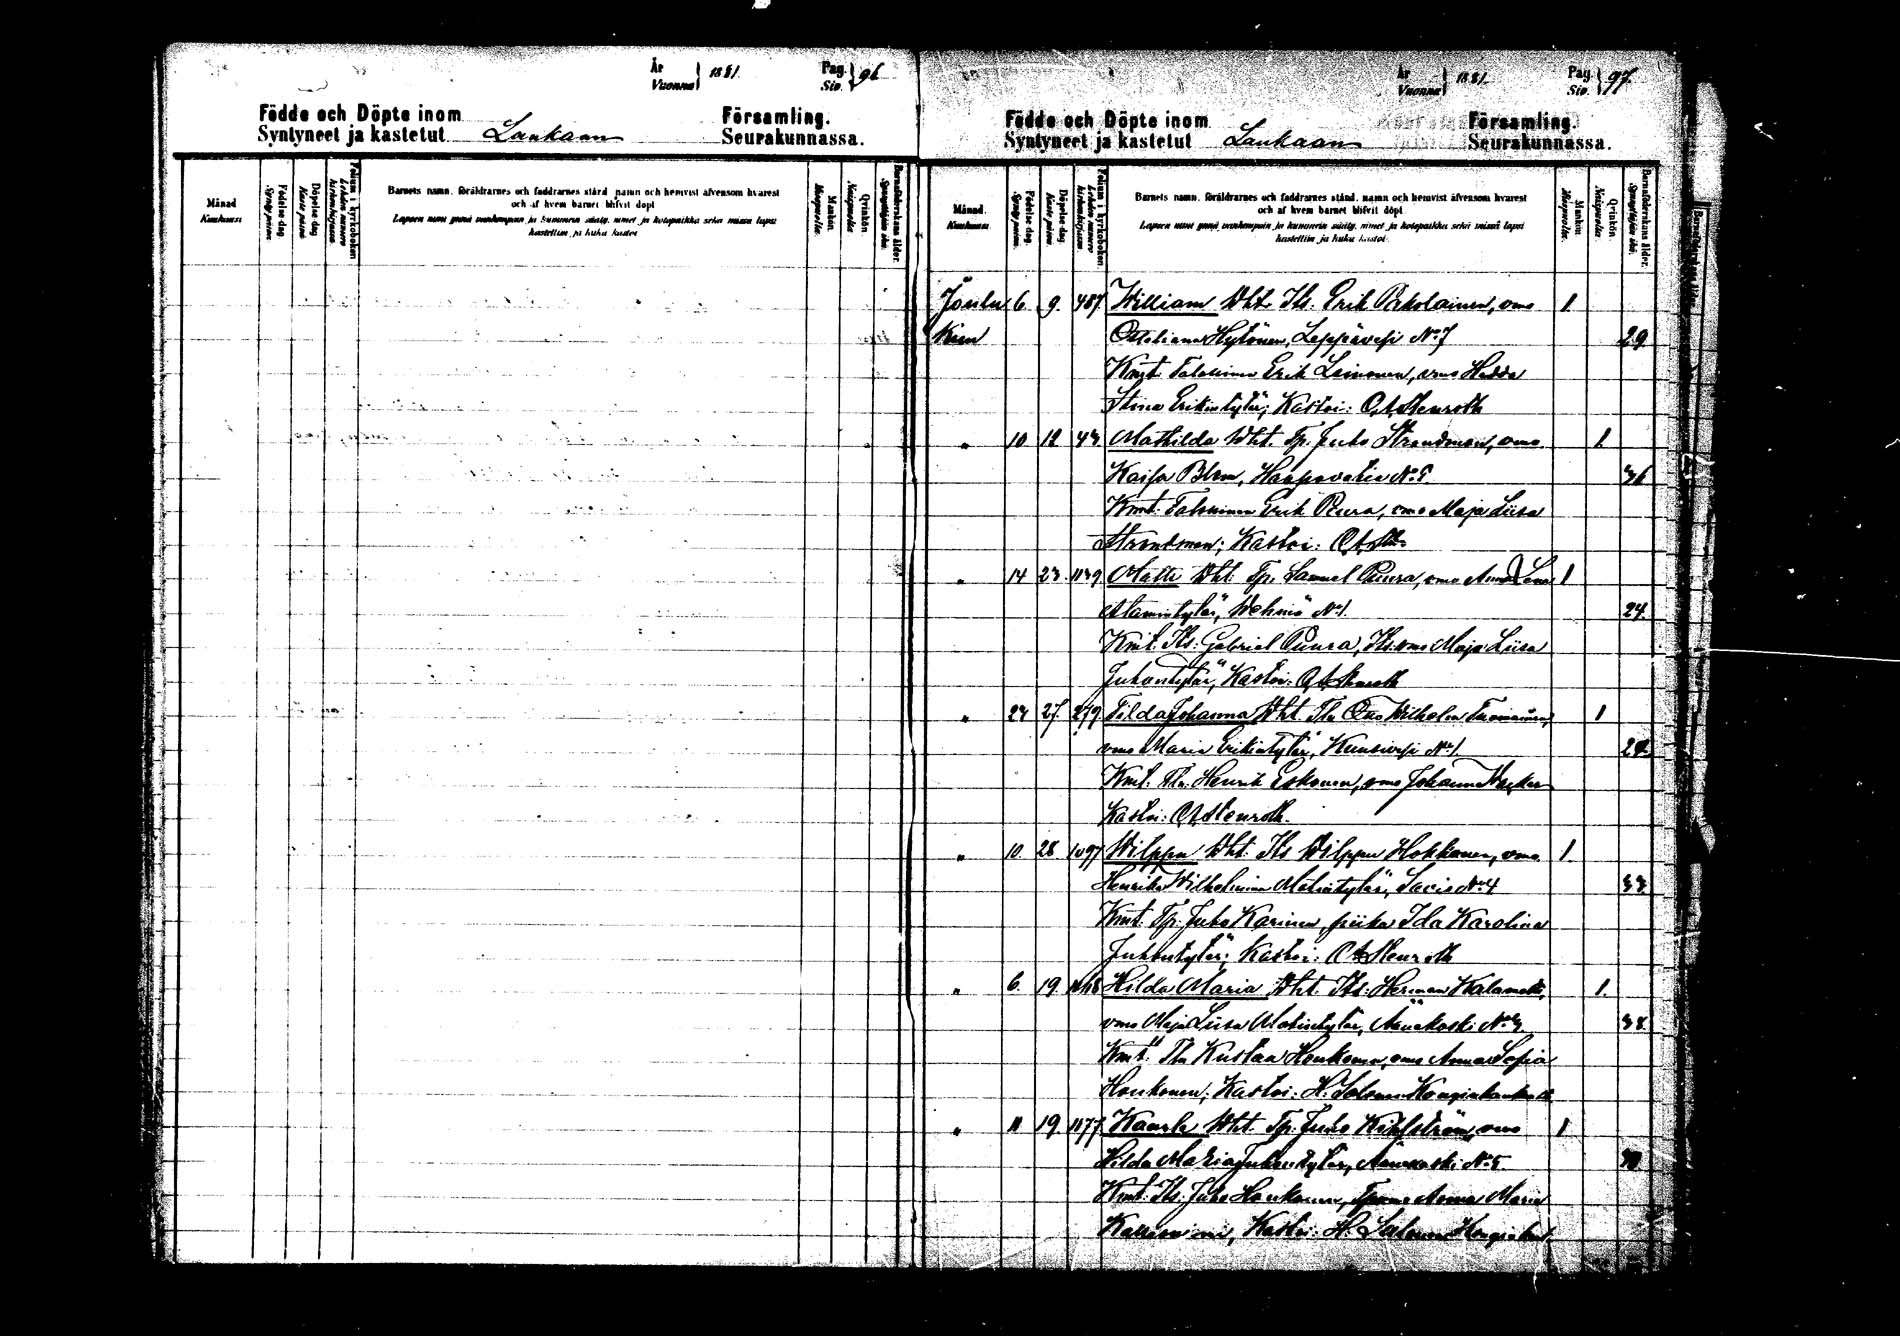 År
Vuonna } 1881.
Pag.
Siv. } 96
Födde och Döpte inom
Syntyneet ja kastetut Laukaan
Församling.
Seurakunnassa.
Månad
Kuukausi
Födelse dag.
Synty päivä.
Döpelse dag.
Kaste päivä.
Folium i kyrkoboken
Lehden numero kirkonkirjassa
Barnets namn, föräldrarnes och faddrarnes stånd, namn och hemvist äfvensom hvarest
och af hvem barnet blifvit döpt
Lapsen nimi ynnä vanhempain ja kummein sääty, nimet ja kotopaikka sekä missä lapsi
kastettiin ja kuka kastoi.
Mankön.
Miespuolia.
Qvinkön.
Naispuolia.
Barnaföderskans ålder.
Synnyttäjän ikä.
År
Vuonna } 1881.
Pag.
Siv. } 97.
Födde och Döpte inom
Syntyneet ja kastetut Laukaan
Församling.
Seurakunnassa.
Månad.
Kuukausi
Födelse dag.
Synty päivä.
Döpelse dag.
Kaste päivä.
Folium i kyrkoboken
Lehden numero kirkonkirjassa
Barnets namn, föräldrarnes och faddrarnes stånd, namn och hemvist äfvensom hvarest
och af hvem barnet blifvit döpt.
Lapsen nimi ynnä vanhempain ja kummein sääty, nimet ja kotopaikka sekä missä lapsi
kastettiin ja kuka kastoi.
Mankön.
Miespuolia.
Qvinkön.
Naispuolia.
Barnaföderskans ålder.
Synnyttäjän ikä.
Joulu 6. 9. 487. William Wht. Its. Erik Pakolainen, vmo 1.
Kuu Hytönen, Leppävesi No 7 29.
Kmt. Talollinen Erik Leinonen, vmo Hedda
Stina Erikintytär; Kastoi: Stenroth
" 10 12 43 Mathilda Wht. Tp. Juho Strandman, vmo 1.
Kaisa Blom, Haapavatia No 5. 36
Kmt. Talollinen Erik Puura, vmo Maja Liisa
Strandman; Kastoi:
" 14 23. 1139 Matti Wht. Tp. Samuel Puura, vmo Anna Lena 1
Adamintytär, Wehniä No 1. 24.
Kmt. Its. Gabriel Puura, Its. vmo Maja Liisa
Juhontytär, Kastoi: Stenroth
" 24 27. 279. Tilda Johanna Wht. Tln Otto Wilhelm Tuominen, 1
vmo Maria Erikintytär, Kuusivesi No 1. 24.
Kmt. Tln. Henrik Eskonen, vmo Johanna
Kastoi: Stenroth.
" 10. 28 1097 Wilppu Wht. Its Wilppu Hokkanen, vmo 1.
Henrika Wilhelmina Matintytär, No 4 33
Kmt. Tp. Juho Karinen, piika Ida Karolina
Juhontytär; Kastoi: Stenroth
" 6. 19. Hilda Maria Wht. Its. Herman 1.
vmo Maja Liisa Matintytär, Äänekoski No 3 38.
Kmt. Tln Kustaa Honkonen, vmo Anna Sofia
Honkonen; Kastoi: H. Salonen
" 11 19. 1177 Kaarle Wht. Tp. Juho vmo 1
Hilda Maria Juhontytär, Äänekoski No 5.
Kmt. Its. Juho Honkonen, Anna Maria
Kastoi: H. Salonen